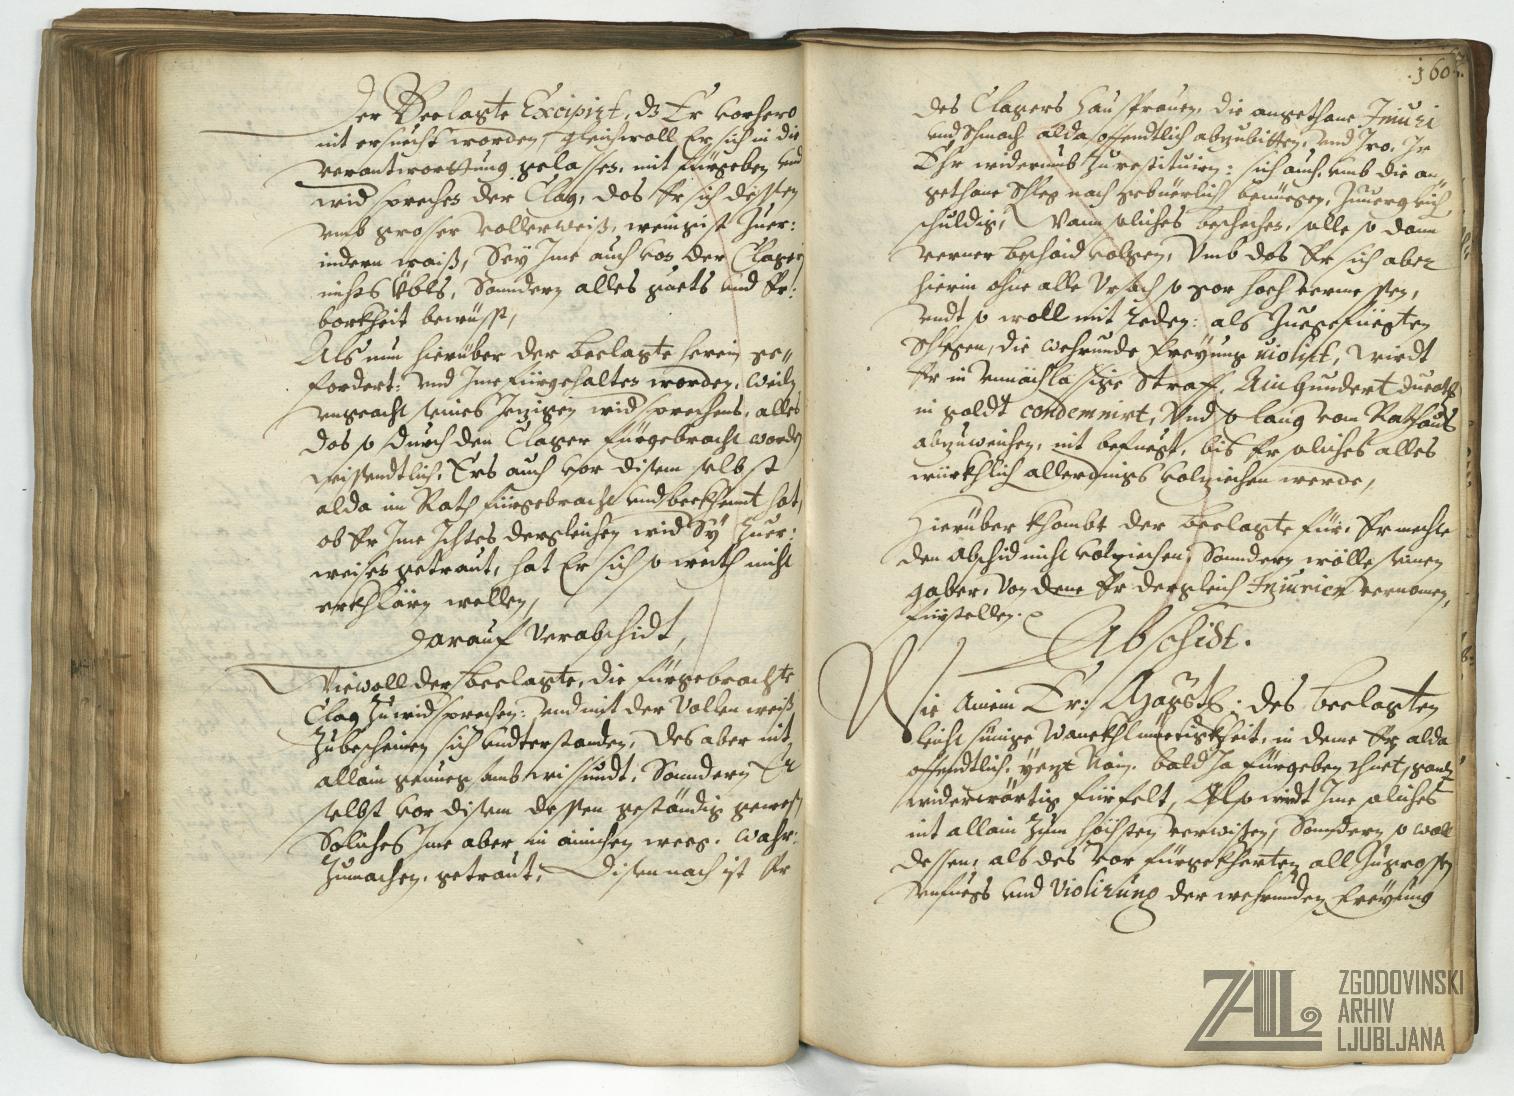 Der Beclagte Excipirt, dz Er vorhero
nit ersuecht worden, gleichwoll Er sich in die
verantworttung gelassen, mit fürgeben und
widsprechen der Clag, das Er sich dessen
umb grosser vollerweiß, wenigist Zuer:
indern waiß, Sey Ime auch von der Clagerin
nichts Übls, Sonndern alles guets und Er:
barkheit bewüsst,
Als nun hierüber der beclagte herein ge„
fordert: und Ime fürgehalten worden, weiln
ungeacht seines Jezigen widsprechens, alles
das so durch den Clager fürgebracht worden
wissendtlich, Ers auch vor disem selbst
alda im Rath fürgebracht und bekhennt hat,
ob Er Ime Ichtes dergleichen wid Sÿ Zuer:
weisen getraut, hat Er sich so weith nicht
erkhlärn wellen,
Darauf Verabschidt,
Wiewoll der beclagte, die fürgebrachte
Clag Zuwidsprechen: und mit der Vollen weiß
Zubescheinen sich understanden, Des aber nit
allain genueg samb wissundt, Sonndern Er
selbst vor disem dessen geständig gewest
Soliches Ime aber in ainichen weeg, wahr:
Zumachen, getraut, Disem nach ist Er
160
des Clagers hausfrauen, die angethane Iniuri
und Schmach alda offendtlich abzubitten, und Iro, Ir
Ehr widerumb Zu restituirn: sich auch, umb die an„
gethane Schleg nach gebüerlich benüegen, Zuvergleich
schuldig, Wann soliches beschechen, solle so dann
verner beschaid volgen, Umb das Er sich aber
hierin ohne alle Ursach so gar hoch vermessen,
undt so woll mit reden: als Zuegefüegten
Schlegen, die wehrunde Freÿung violirt, wierdt
Er in unnachlässige Straf, Ain hundert ducaten
in goldt condemnirt, Und so lang vom Rathaus
abzuweichen, nit befuegt, bis Er soliches alles
würkhlich allerdings volziechen werde,
Hierüber khombt der beclagte für, Er mechte
den abschid nicht volziechen, Sonndern wölle seinen
gaber, Von deme Er dergleich Iniurien vernomen,
fürstellen.
Abschidt.
Wie Ainem Er: Magist: des beclagten
leicht sinige Wanckhlmüetigkheit, in deme Er alda
offendtlich, yezt Nain, bald Ja fürgeben thuet, ganz
widerwärtig fürfelt, Also wirdt Ime soliches
nit allain zum höchsten verwisen, Sonndern so woll
dessen, als des Vor fürgekherten all Zugrossen
unfuegs und Violirung der wehrunden Freÿung
ZAL ZGODOVINSKI
ARHIV
LJUBLJANA